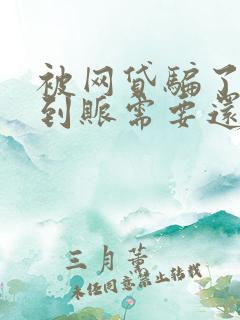 被网贷骗了
到账需要还
三月薰
未经同意禁止转载